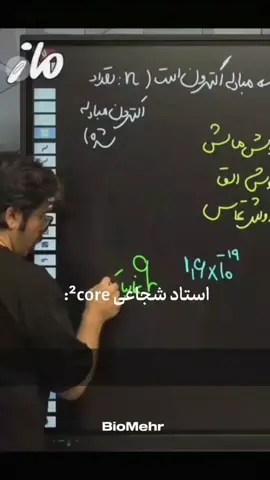 ماز
مبادله الکترون است (n: تعداد
الکترون مبادله
شده)
روش مالش
روش القا
روش تماس
q
1,6×10⁻¹⁹
استاد شجاعی core²:
BioMehr